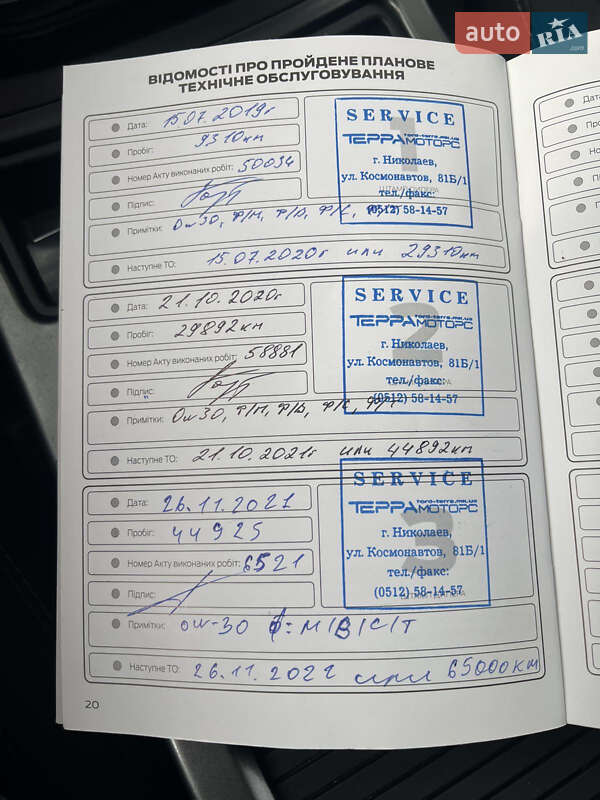 auto RIA .com
ВІДОМОСТІ ПРО ПРОЙДЕНЕ ПЛАНОВЕ
ТЕХНІЧНЕ ОБСЛУГОВУВАННЯ
Дата: 15.07.2019г
Пробіг: 9310км
Номер Акту виконаних робіт: 50034
Підпис:
Примітки: 0w30, Ф/М, Ф/В, Ф/С,
Наступне ТО: 15.07.2020г или 29310км
1
SERVICE
toro-terra.mk.ua
ТЕРРАМОТОРС
г. Николаев,
ул. Космонавтов, 81Б/1
тел./факс:
(0512) 58-14-57
Дата: 21.10.2020г
Пробіг: 29892км
Номер Акту виконаних робіт: 58881
Підпис:
Примітки: 0w30, Ф/М, Ф/В, Ф/С,
Наступне ТО: 21.10.2021г или 44892км
2
SERVICE
ТЕРРАМОТОРС
г. Николаев,
ул. Космонавтов, 81Б/1
тел./факс:
(0512) 58-14-57
Дата: 26.11.2021
Пробіг: 44925
Номер Акту виконаних робіт: 6521
Підпис:
Примітки: 0w-30 ф: М/В/С/Т
Наступне ТО: 26.11.2022 или 65000км
3
SERVICE
ТЕРРАМОТОРС
г. Николаев,
ул. Космонавтов, 81Б/1
тел./факс:
(0512) 58-14-57
20